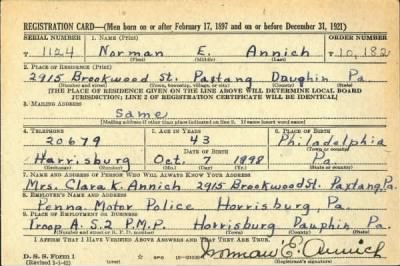 REGISTRATION CARD—(Men born on or after February 17, 1897 and on or before December 31, 1921)
SERIAL NUMBER 1. NAME (Print) ORDER NUMBER
T 1124 Norman E. Annich T 10,182
(First) (Middle) (Last)
2. PLACE OF RESIDENCE (Print)
2915 Brookwood St. Paxtang Dauphin Pa.
(Number and street) (Town, township, village, or city) (County) (State)
[THE PLACE OF RESIDENCE GIVEN ON THE LINE ABOVE WILL DETERMINE LOCAL BOARD
JURISDICTION; LINE 2 OF REGISTRATION CERTIFICATE WILL BE IDENTICAL]
3. MAILING ADDRESS
Same
[Mailing address if other than place indicated on line 2. If same insert word same]
4. TELEPHONE 5. AGE IN YEARS 6. PLACE OF BIRTH
20679 43 Philadelphia
DATE OF BIRTH (Town or county)
Harrisburg Oct. 7 1898 Pa.
(Mo.) (Day) (Yr.) (State or country)
7. NAME AND ADDRESS OF PERSON WHO WILL ALWAYS KNOW YOUR ADDRESS
Mrs. Clara K. Annich 2915 Brookwood St. Paxtang, Pa.
8. EMPLOYER'S NAME AND ADDRESS
Penna. Motor Police Harrisburg, Pa.
9. PLACE OF EMPLOYMENT OR BUSINESS
Troop A. S.2 P.M.P. Harrisburg Dauphin Pa.
(Number and street or R. F. D. number) (Town) (County) (State)
I AFFIRM THAT I HAVE VERIFIED ABOVE ANSWERS AND THAT THEY ARE TRUE.
D. S. S. Form 1 Norman E. Annich
(Revised 1-1-42) (Registrant's signature)